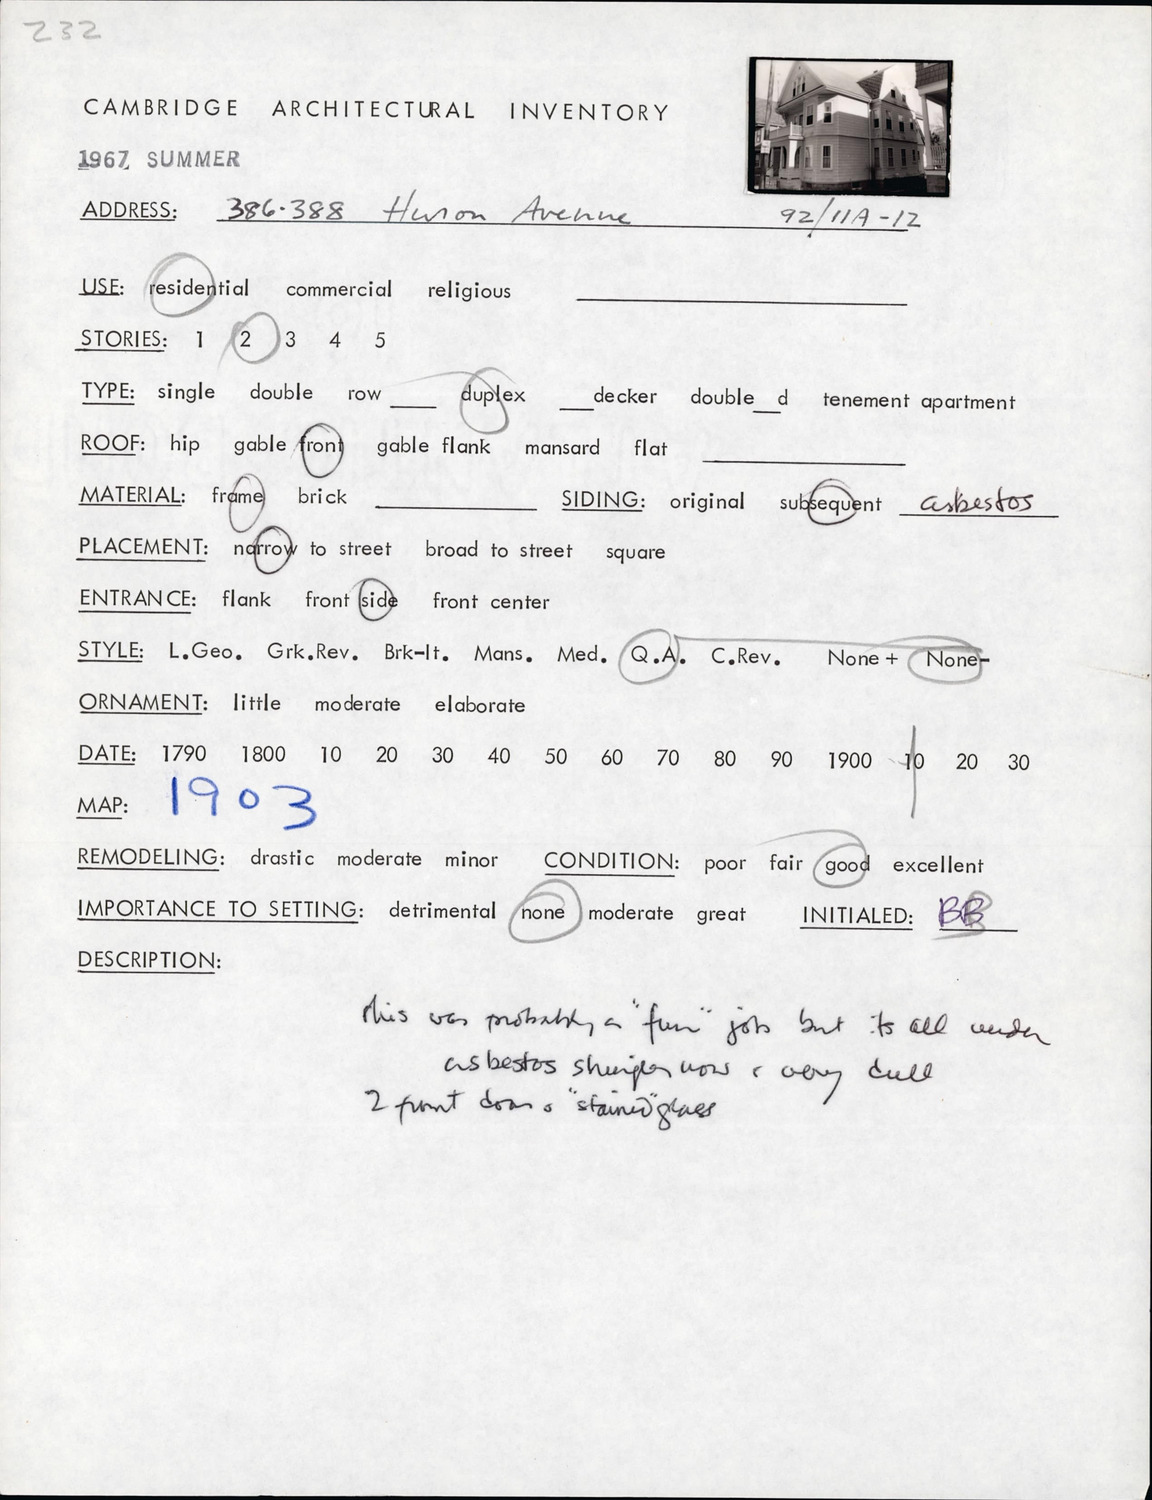 232
CAMBRIDGE ARCHITECTURAL INVENTORY
1967 SUMMER
ADDRESS: 386-388 Huron Avenue 92/11A-12
USE: residential commercial religious
STORIES: 1 2 3 4 5
TYPE: single double row ___ duplex ___decker double__d tenement apartment
ROOF: hip gable front gable flank mansard flat
MATERIAL: frame brick SIDING: original subsequent asbestos
PLACEMENT: narrow to street broad to street square
ENTRANCE: flank front side front center
STYLE: L.Geo. Grk.Rev. Brk-It. Mans. Med. Q.A. C.Rev. None + None-
ORNAMENT: little moderate elaborate
DATE: 1790 1800 10 20 30 40 50 60 70 80 90 1900 10 20 30
MAP: 1903
REMODELING: drastic moderate minor CONDITION: poor fair good excellent
IMPORTANCE TO SETTING: detrimental none moderate great INITIALED: BB
DESCRIPTION:
this was probably a "fun" job but its all under
asbestos shingles now & very dull
2 front doors "stained" glass